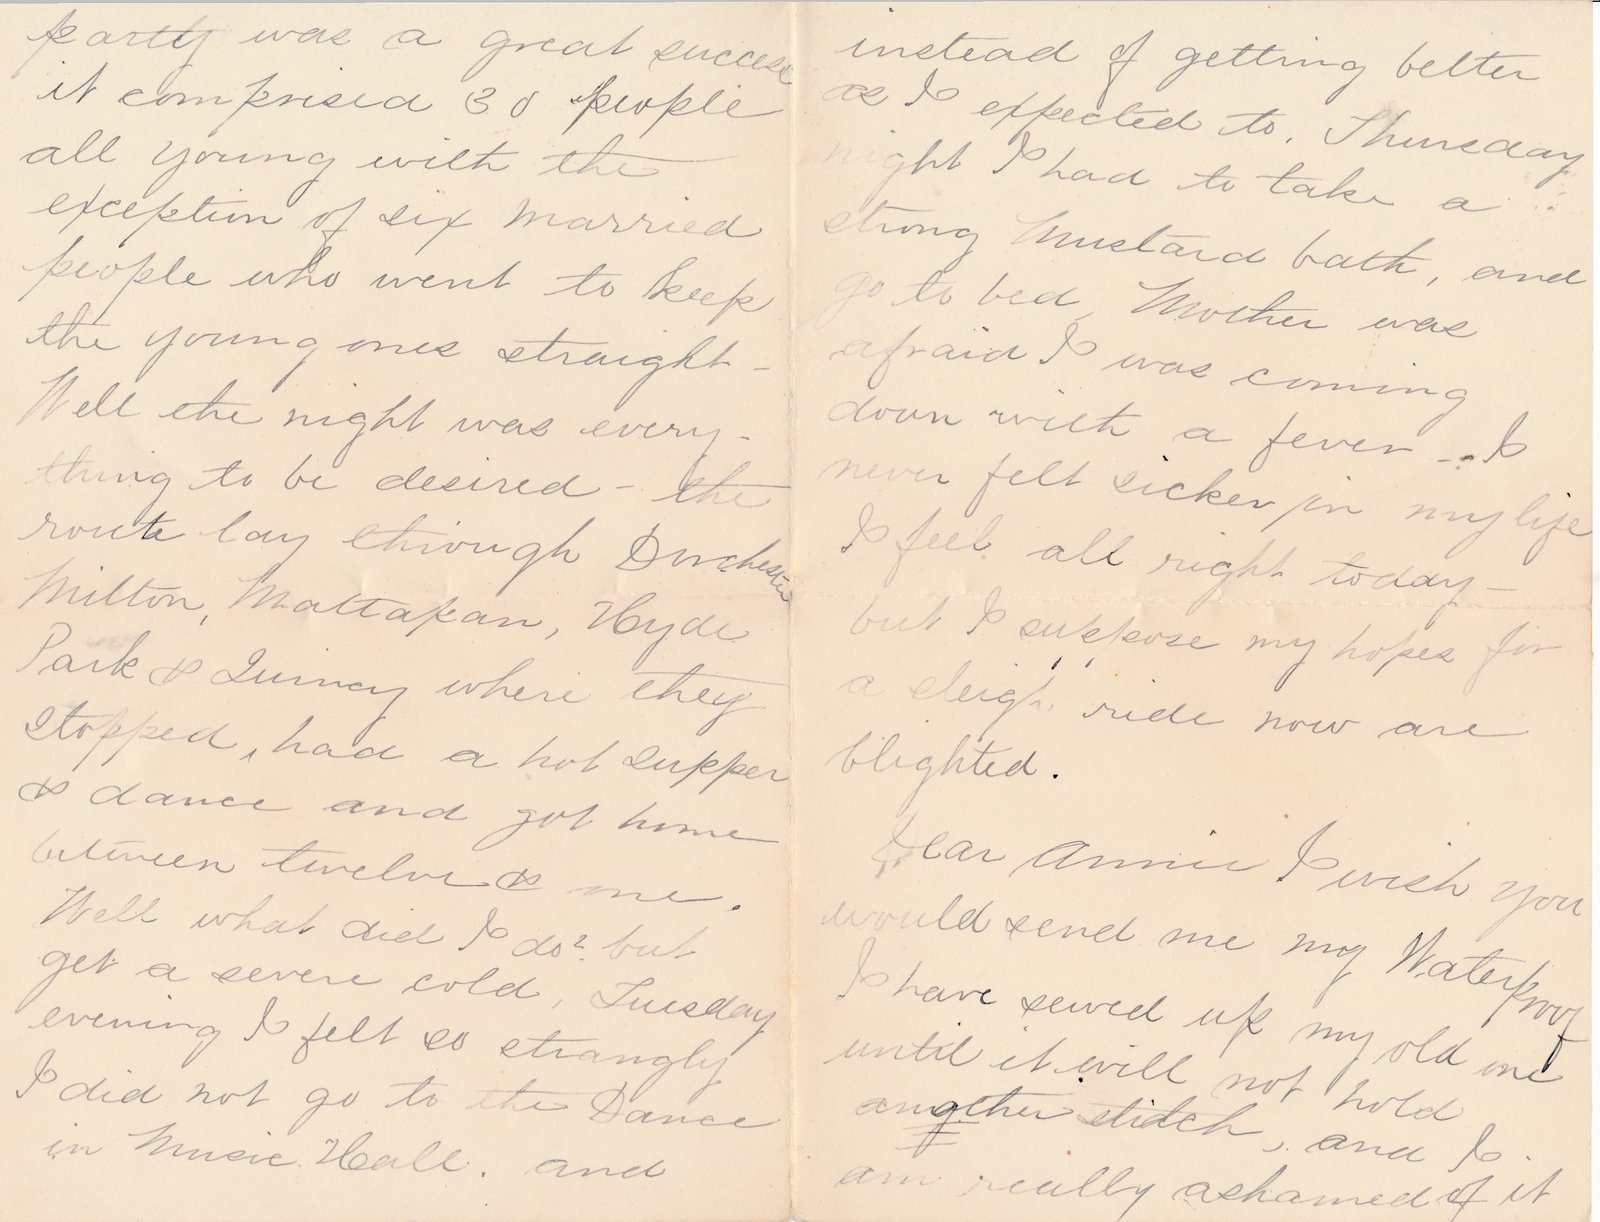 party was a great success
it comprised 30 people
all young with the
exception of six married
people who went to keep
the young ones straight -
Well the night was every-
thing to be desired - the
route lay through Dorchester
Milton, Mattapan, Hyde
Park & Quincy where they
stopped, had a hot supper
& dance and got home
between twelve & one.
Well what did I do? but
get a severe cold, Tuesday
evening I felt so strangly
I did not go to the Dance
in Music Hall. and
instead of getting better
as I expected to. Thursday
night I had to take a
strong Mustard bath, and
go to bed, Mother was
afraid I was coming
down with a fever - I
never felt sicker in my life
I feel all right today -
but I suppose my hopes for
a sleigh ride now are
blighted.
Dear Annie I wish you
would send me my Waterproof
I have sewed up my old one
until it will not hold
another stitch, and I
am really ashamed of it